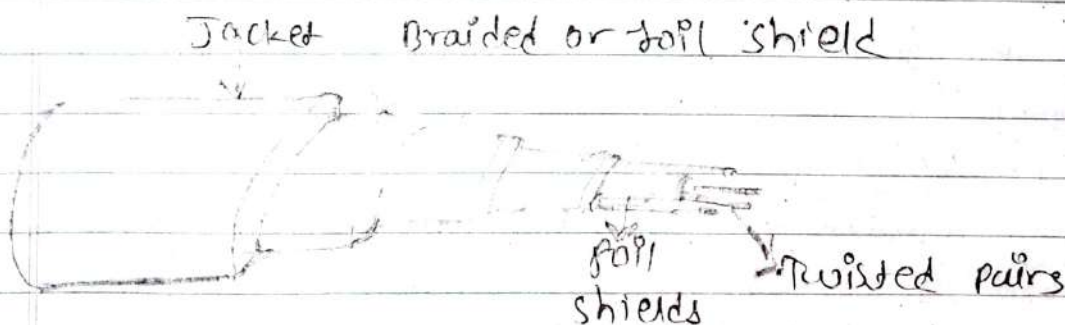 Jacket Braided or foil shield
foil
shields
Twisted pairs